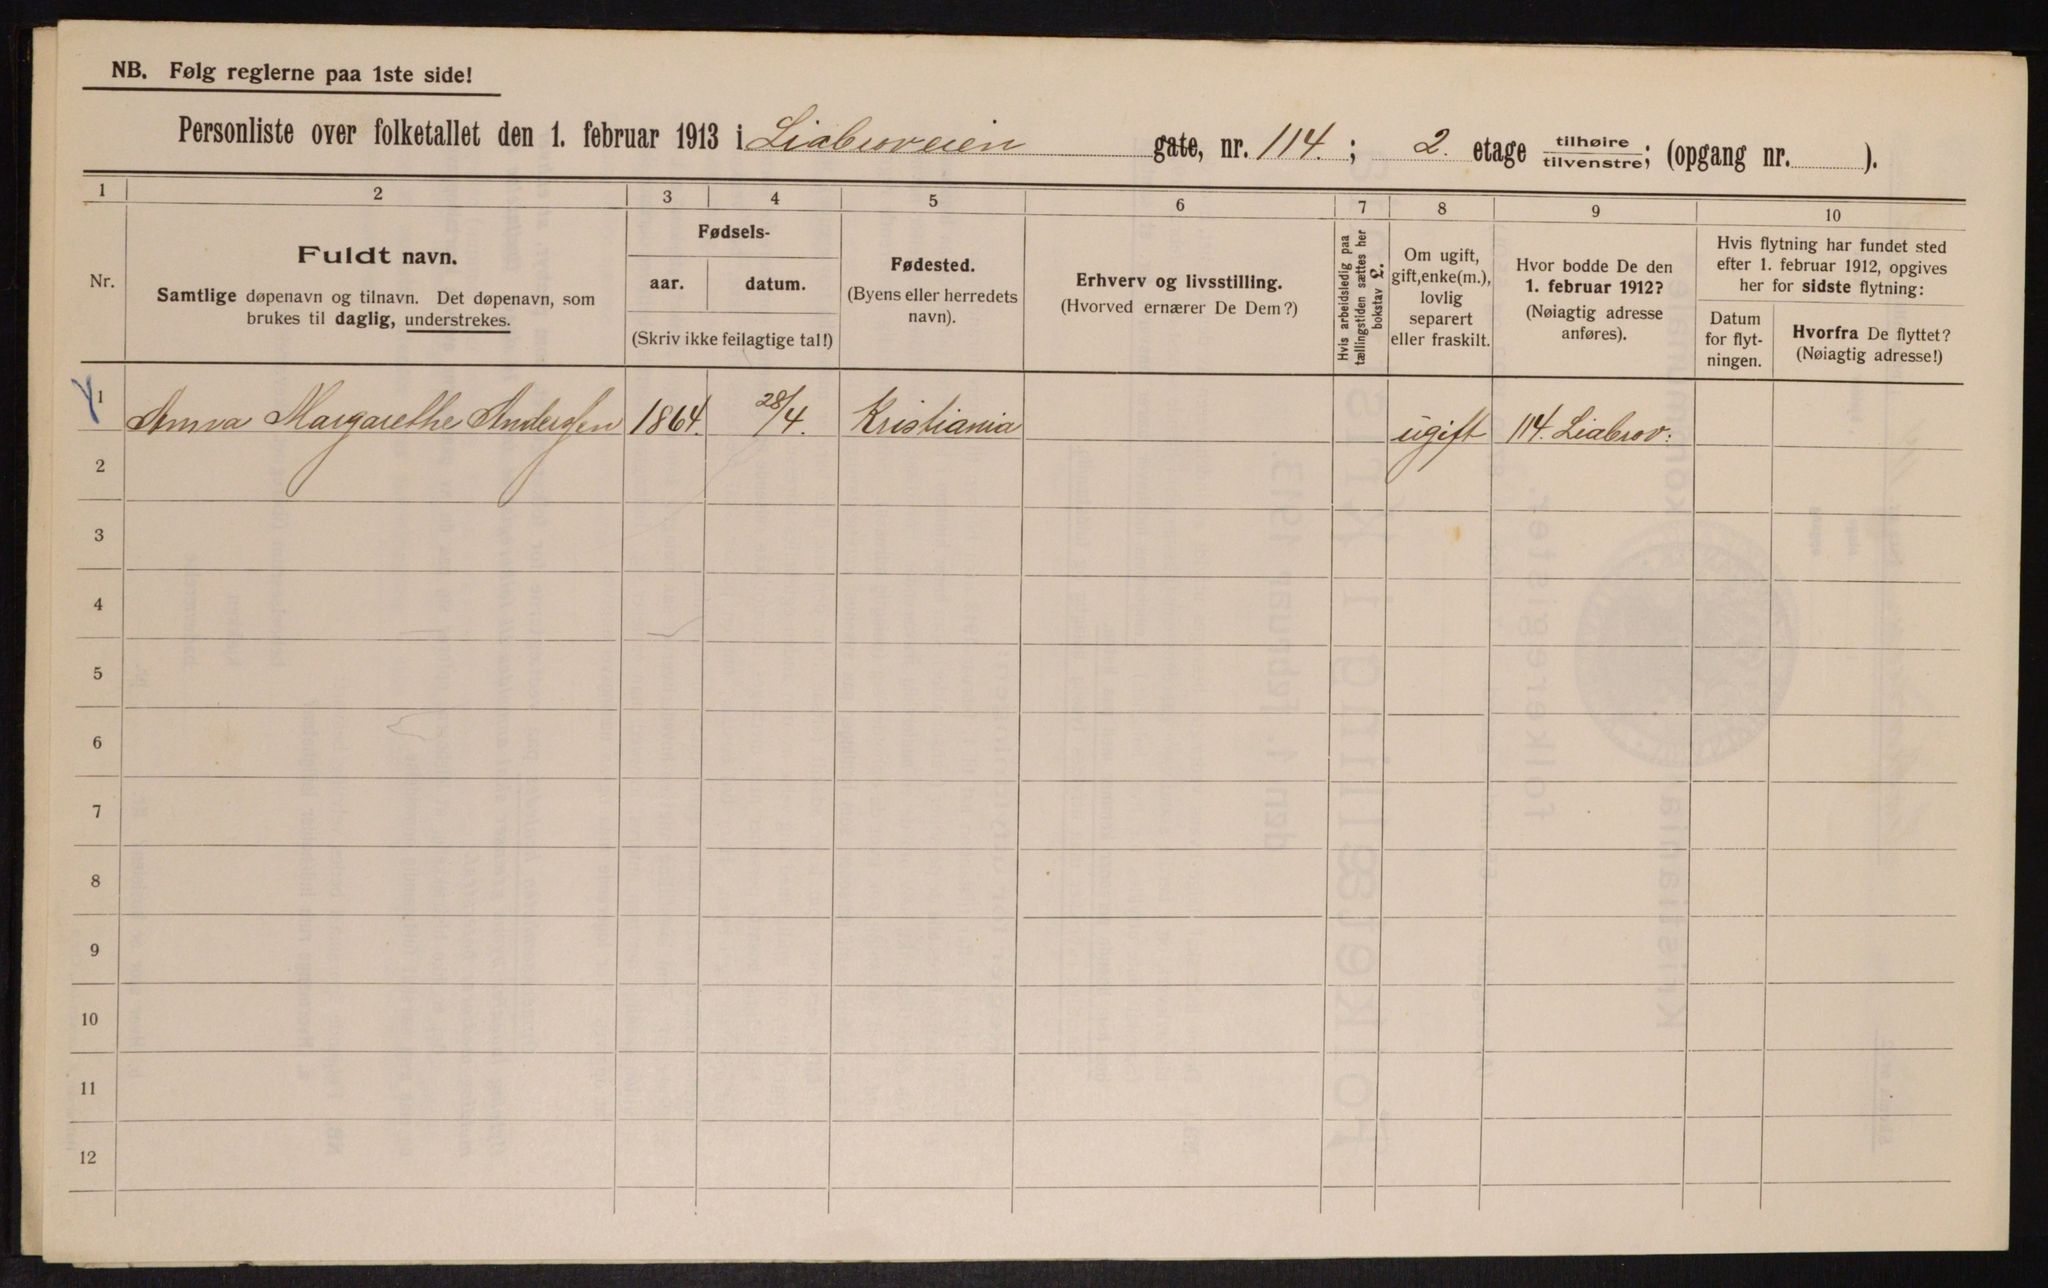 NB. Følg reglerne paa 1ste side!
Personliste over folketallet den 1. februar 1913 i Liabroveien gate, nr. 114. ; 2. etage tilhøire tilvenstre; (opgang nr. ).
1 2 3 4 5 6 7 8 9 10
Nr.
Fuldt navn.
Samtlige døpenavn og tilnavn. Det døpenavn, som
brukes til daglig, understrekes.
Fødsels-
aar. datum.
(Skriv ikke feilagtige tal!)
Fødested.
(Byens eller herredets
navn).
Erhverv og livsstilling.
(Hvorved ernærer De Dem?)
Hvis arbeidsledig paa
tællingstiden sættes her
bokstav L.
Om ugift,
gift, enke(m.),
lovlig
separert
eller fraskilt.
Hvor bodde De den
1. februar 1912?
(Nøiagtig adresse
anføres).
Hvis flytning har fundet sted
efter 1. februar 1912, opgives
her for sidste flytning:
Datum
for flyt-
ningen.
Hvorfra De flyttet?
(Nøiagtig adresse!)
1 Anna Margarethe Andersen 1864. 28/4. Kristiania ugift 114. Liabrov:
2
3
4
5
6
7
8
9
10
11
12